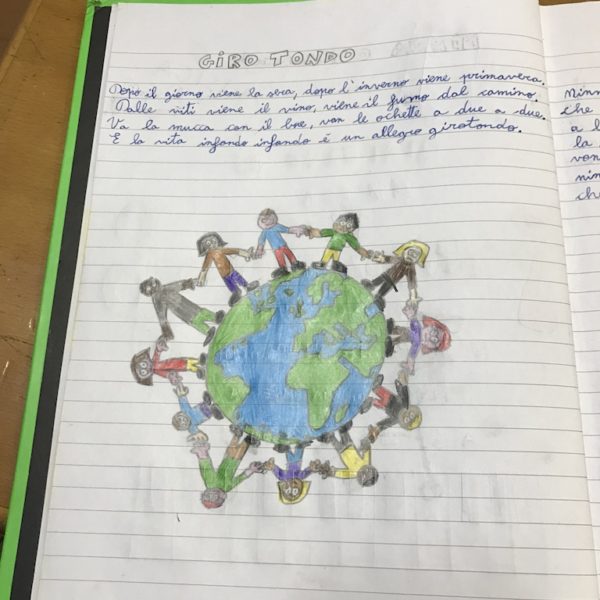 GIRO TONDO
Dopo il giorno viene la sera, dopo l'inverno viene primavera.
Dalle viti viene il vino, viene il fumo dal camino.
Va la mucca con il bue, van le ochette a due a due.
E la vita infondo infondo è un allegro girotondo.
Ninn
che
a l
la
von
nin
ch